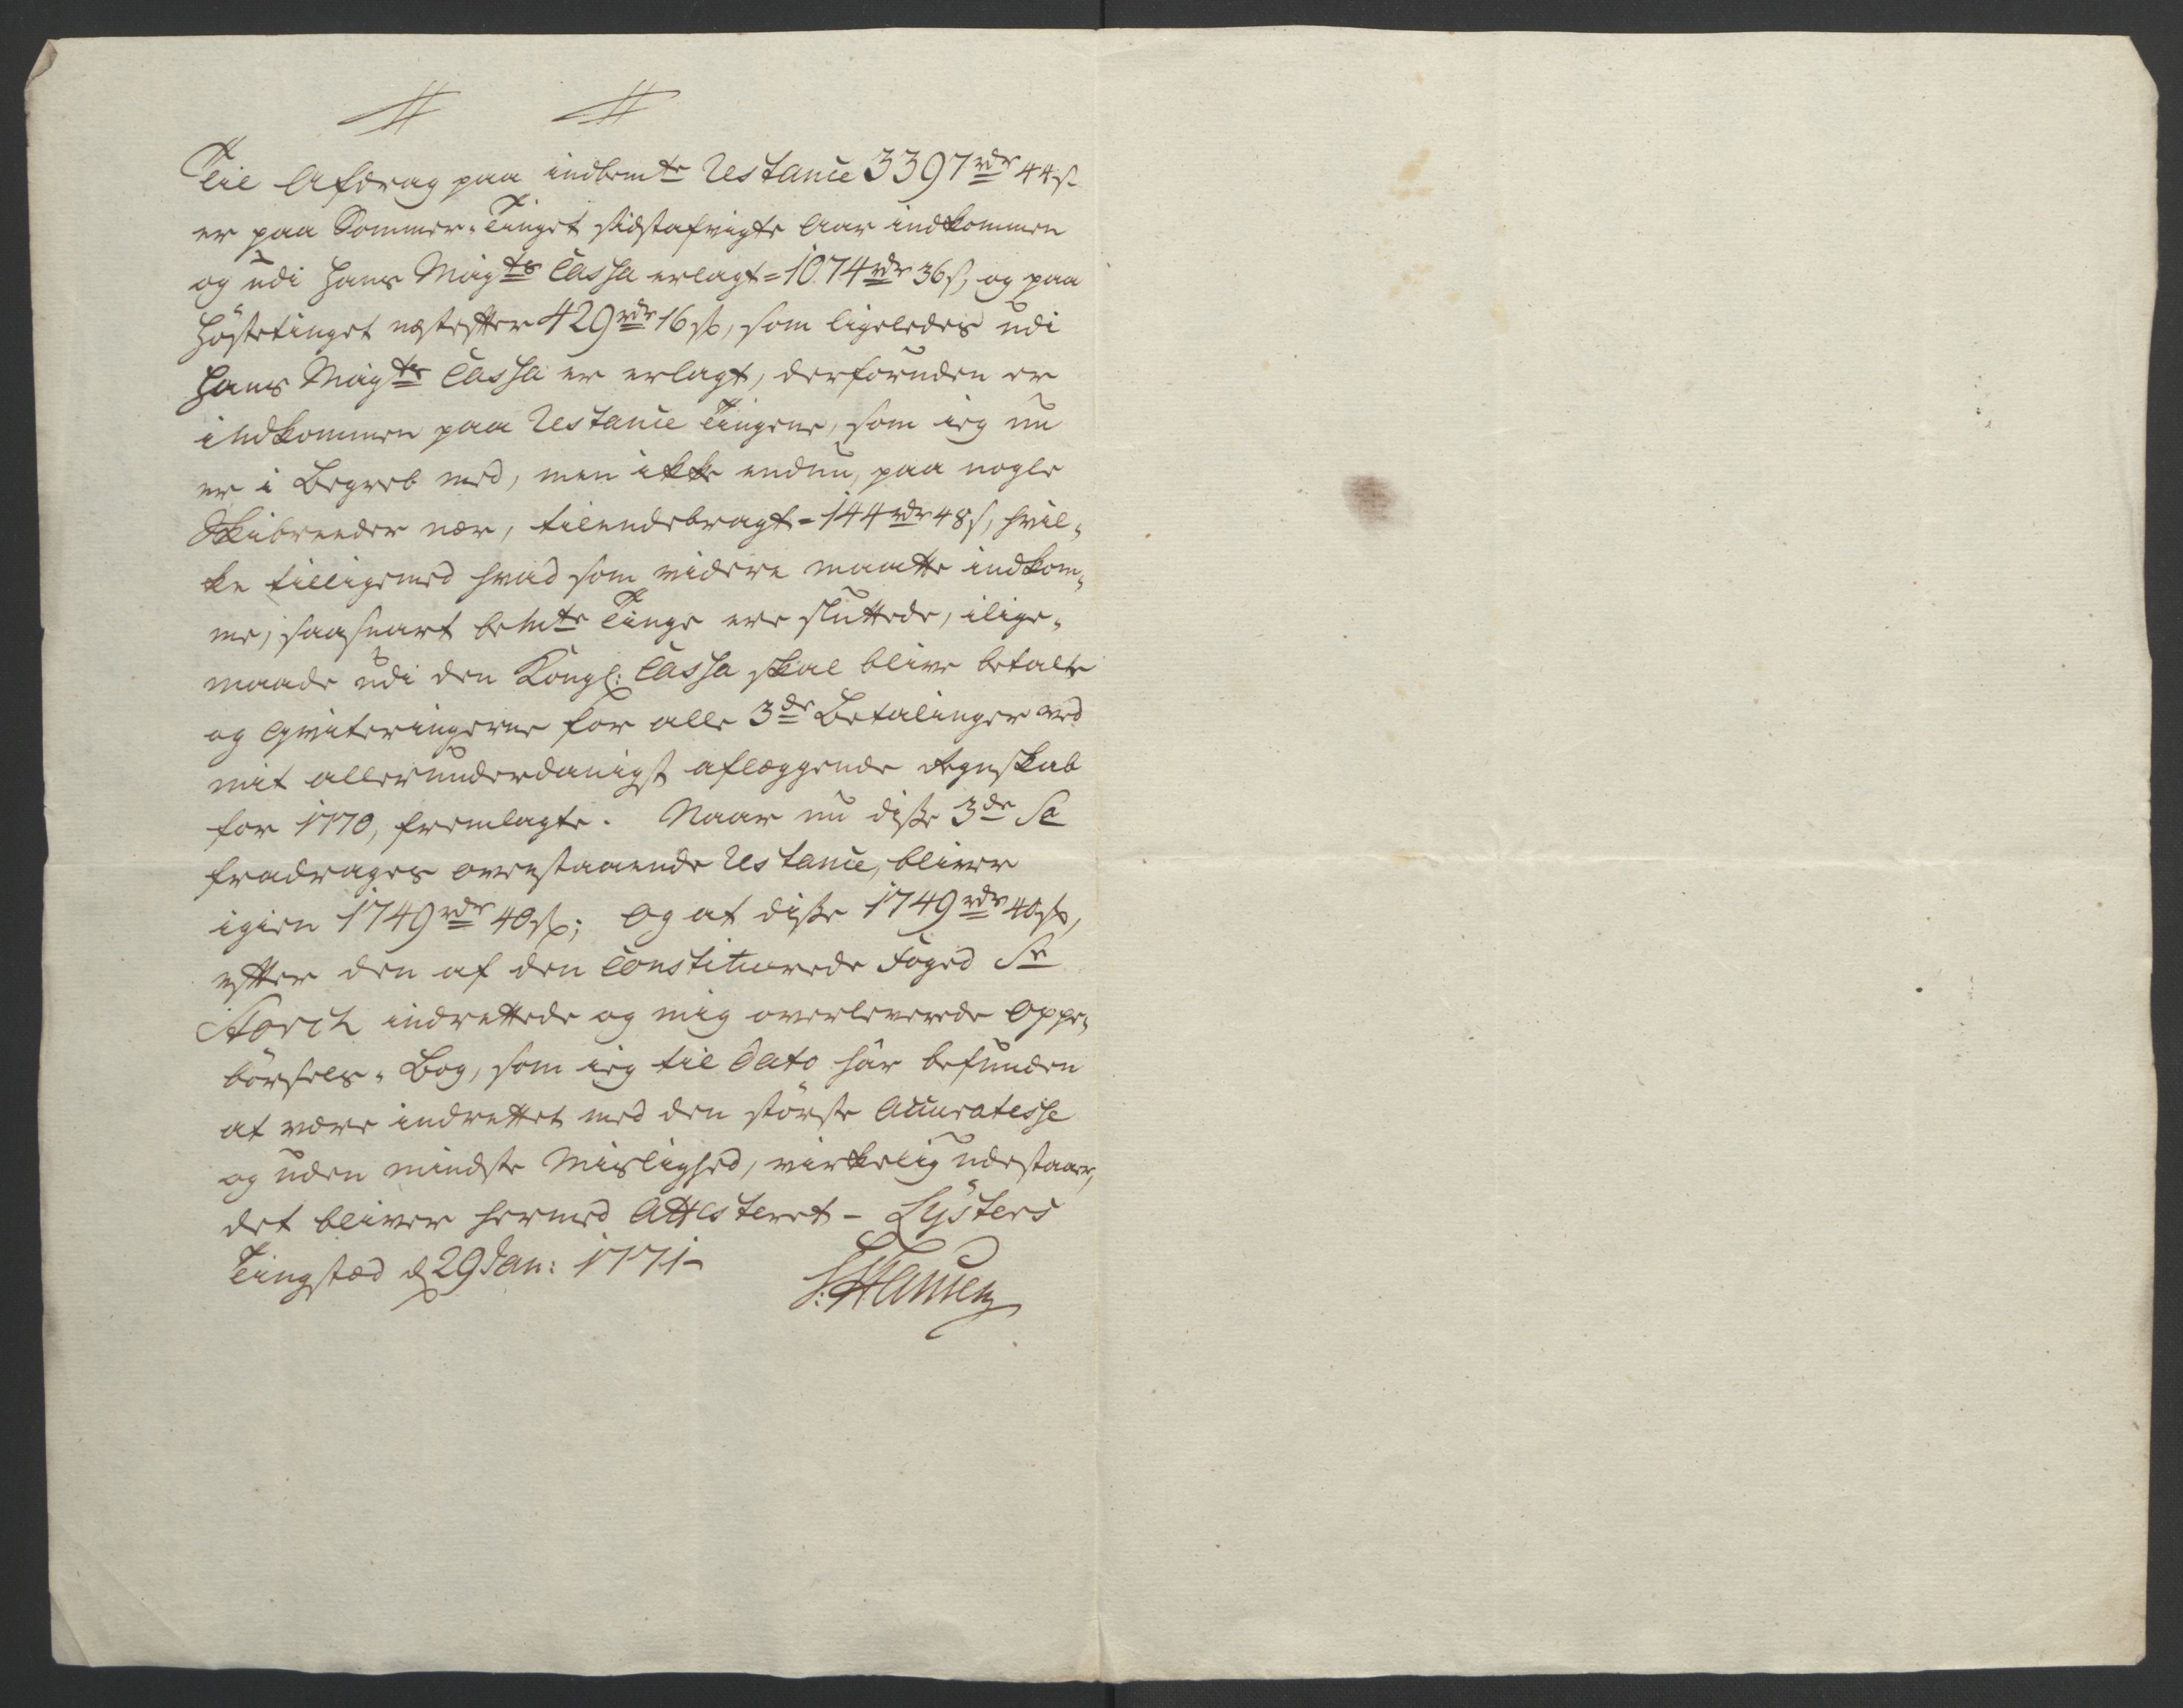 Til Afdrag paa indbemte Restance 3397 rdr 44 s
er paa Sommer-Tinget sidstafvigte Aar indkommen
og udi Hans Mayts Cassa erlagt = 1074 rdr 36 s, og paa
Høstetinget næstefter 429 rdr 16 s, som ligeledes udi
Hans Mayts Cassa er erlagt, derforuden er
indkommen paa Restance Tingene, som ieg nu
er i Begreb med, men ikke endnu, paa nogle
Skibreeder nær, tilendebragt = 144 rdr 48 s, hvil-
ke tilligemed hvad som videre maatte indkom-
me, saasnart bemte Tinge ere sluttede, ilige-
maade udi den Kongl: Cassa skal blive betalte
og Qviteringerne for alle 3de Betalinger ved
mit allerunderdanigst aflæggende Regnskab
for 1770, fremlagte. Naar nu disse 3de Sa
fradrages ovenstaaende Restance, bliver
igien 1749 rdr 40 s; Og at disse 1749 rdr 40 s,
efter den af den Constituerede Foged Sr
Storch indrettede og mig overleverede Oppe-
børsels-Bog, som ieg til Dato har befunden
at være indrettet med den største Accuratesse
og uden mindste Mislighed, virkelig udestaaer,
det bliver hermed Attesteret - Lysters
Tingstæd d 29 Jan: 1771 -